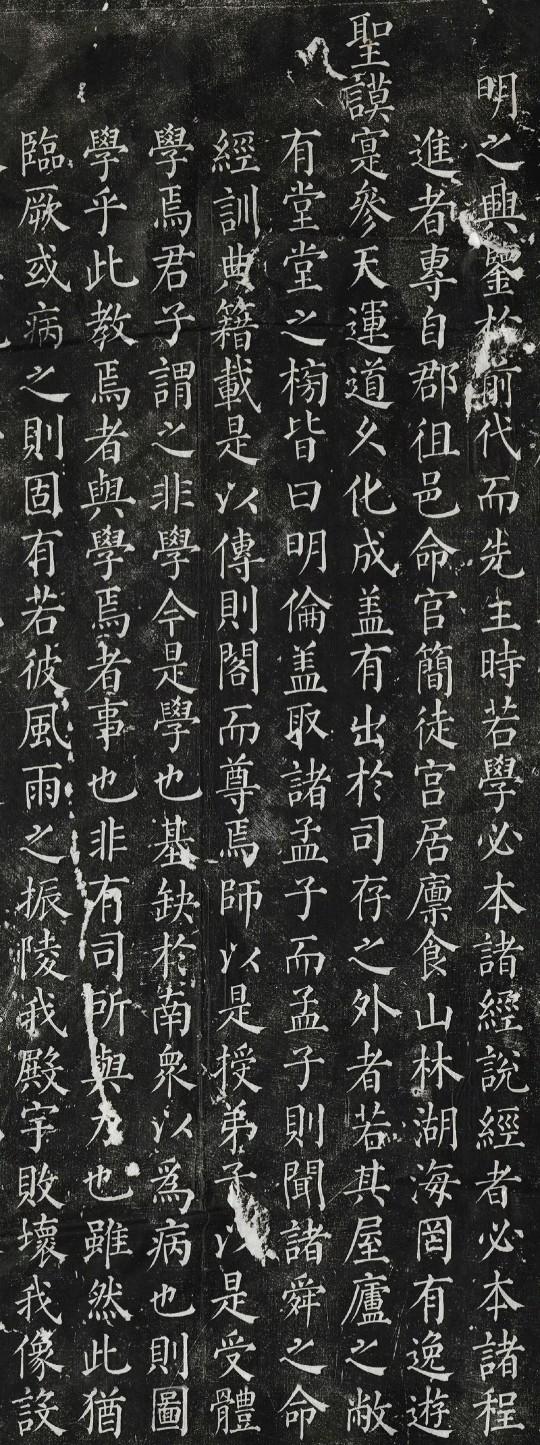 明之興鑒於前代而先王時若學必本諸經說經者必本諸程
進者專自郡徂邑命官簡徒宫居廪食山林湖海罔有逸遊
聖謨寔參天運道久化成盖有出於司存之外者若其屋廬之敝
有堂堂之榜皆曰明倫盖取諸孟子而孟子則聞諸舜之命
經訓典籍載是以傳則閣而尊焉師以是授弟子以是受體
學焉君子謂之非學今是學也基缺於南衆以爲病也則圖
學乎此教焉者與學焉者事也非有司所與力也雖然此猶
臨厥或病之則固有若彼風雨之振陵我殿宇敗壞我像設